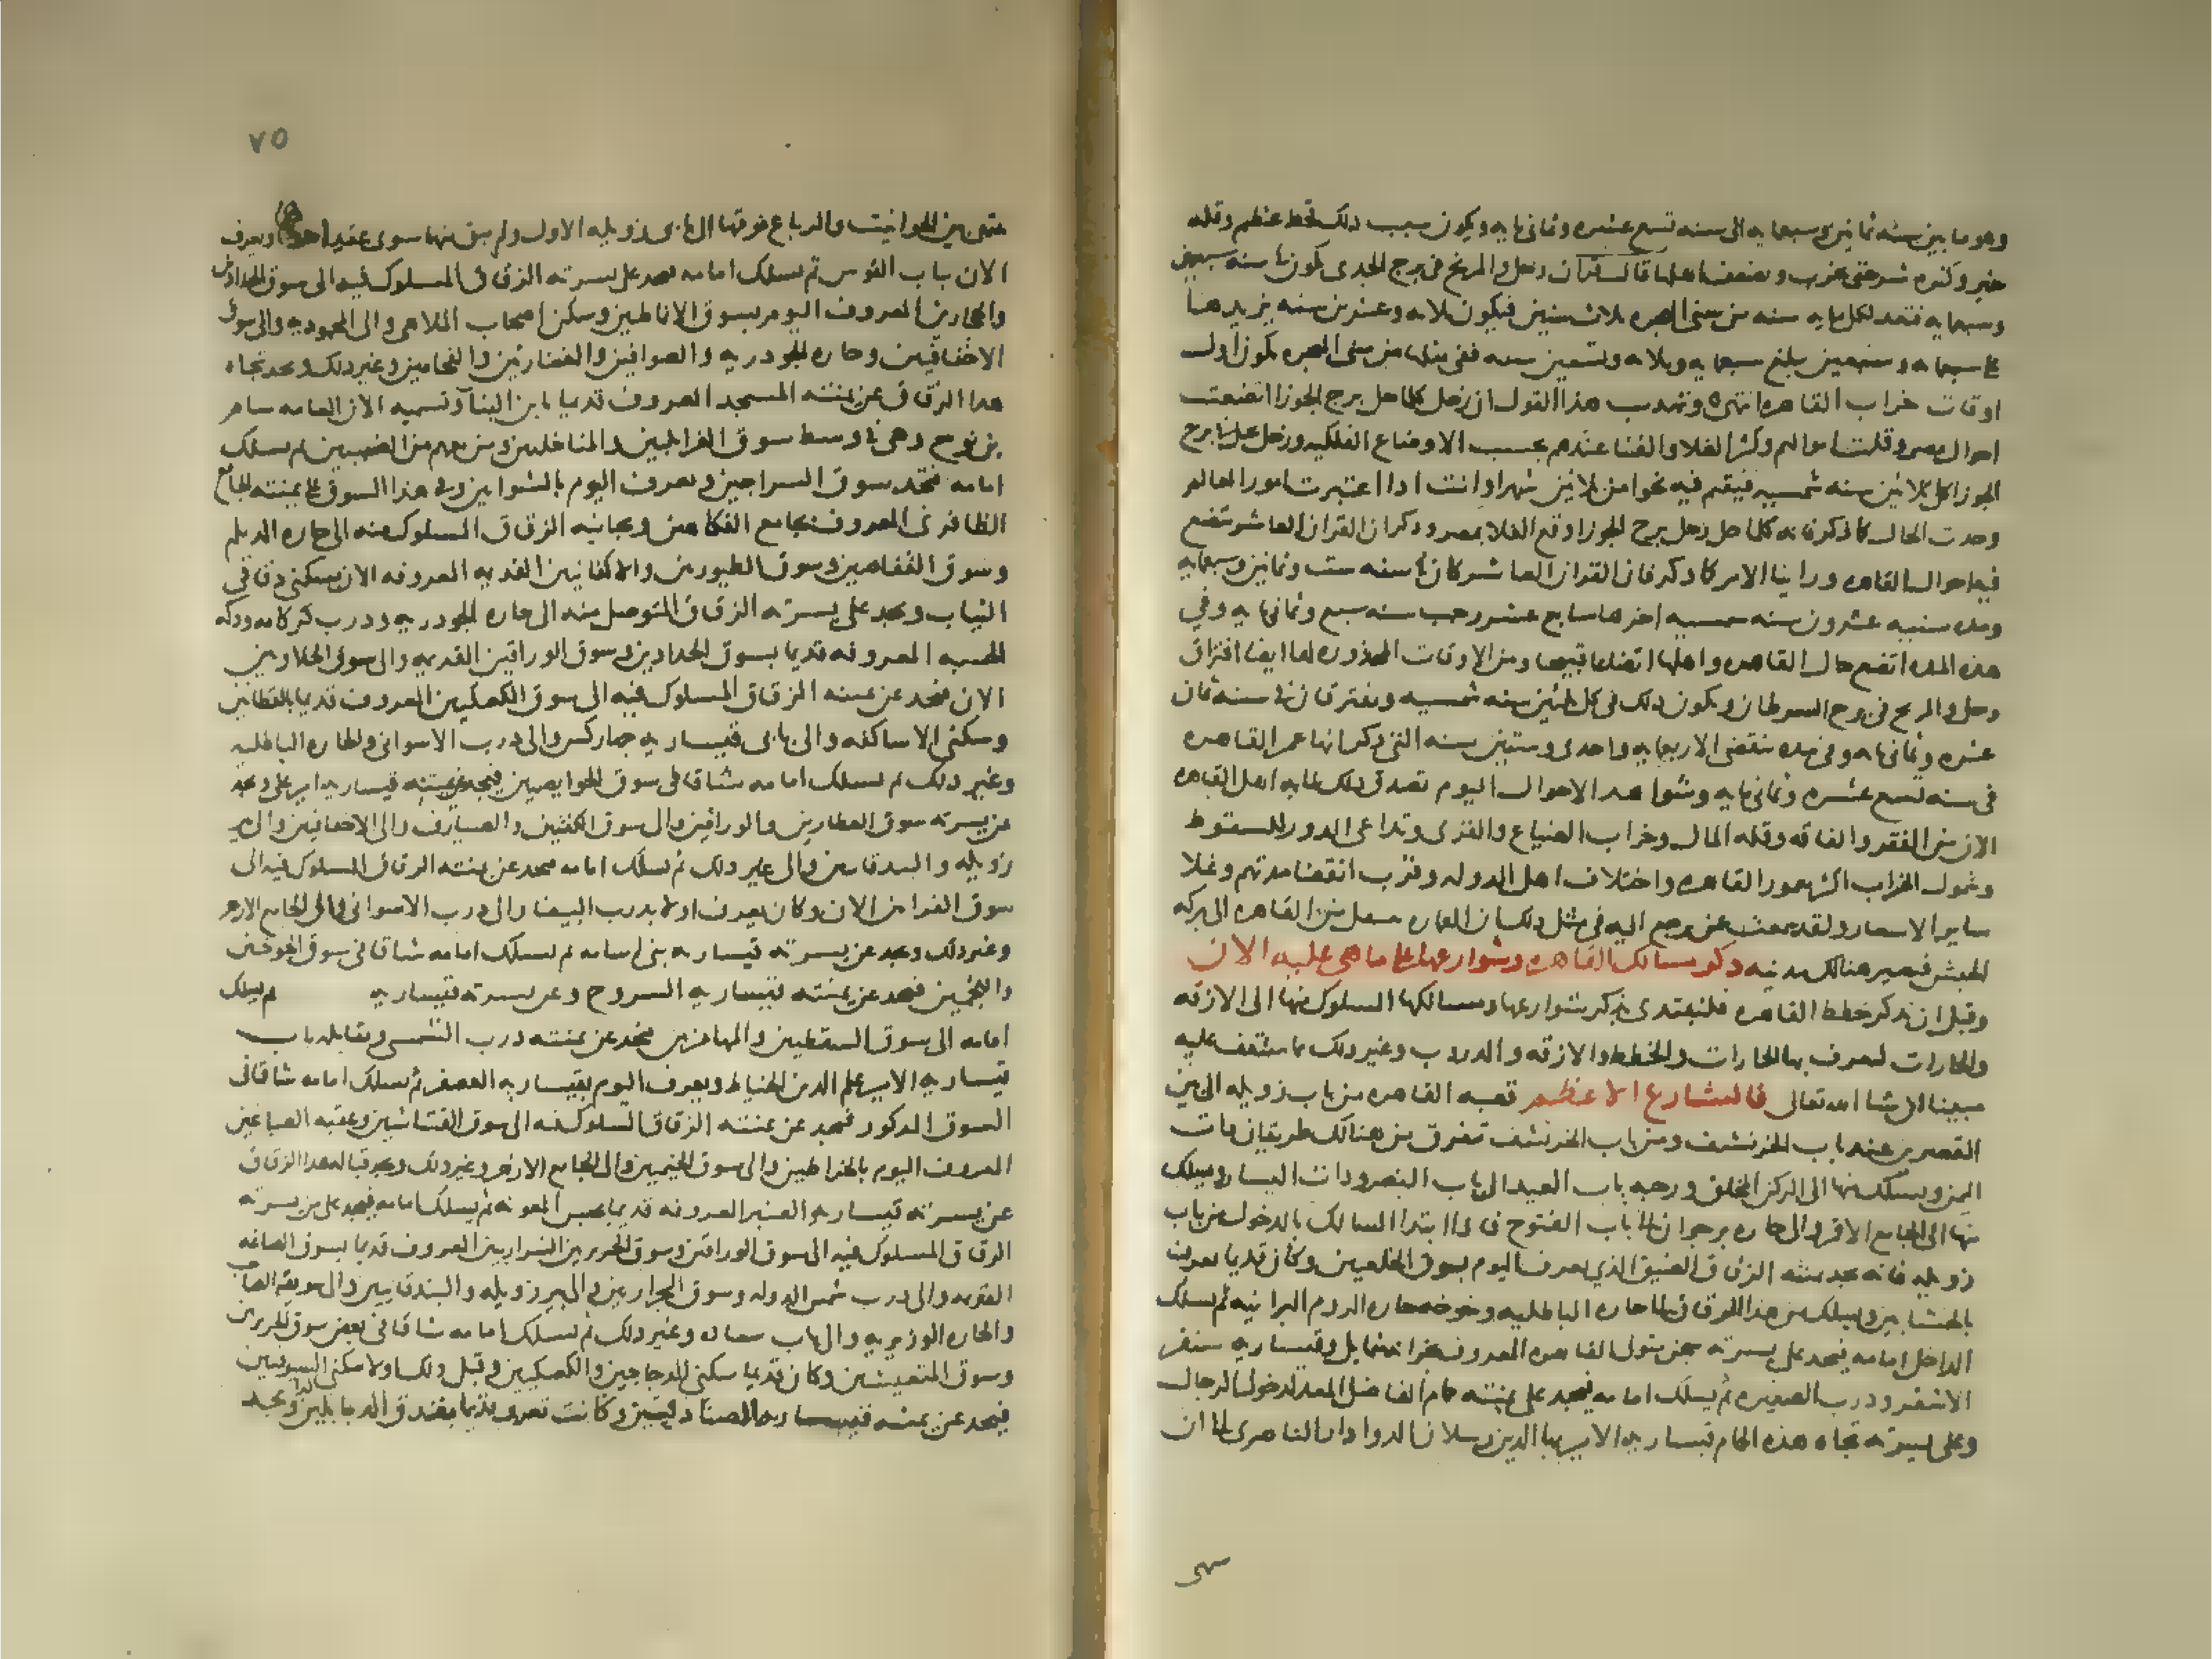 وهو ما بين سنه ثمانين وسبعمايه الى سنه تسع عشره وثمانمايه ويكون سبب ذلك قحط عظيم وقله
خير وكثره شر حتى تخرب ويضعف اهلها قال قران زحل والمريخ في برج الجدى يكون في سنه سبعين
وسبعمايه فتعد لكل مايه سنه من سنى الهجره ثلاث سنين فيكون ثلاثه وعشرين سنه يزيدها
على سبعمايه وسبعين يبلغ سبعمايه وثلاثه وتسعين سنه ففى مثلها من سنى الهجره يكون اول
اوقات خراب القاهره انتهى وتهذيب هذا القول ان زحل كلما حل برج الجوزا اتضعت
احوال مصر وقلت اموالهم وكثر الغلا والفنا عندهم بحسب الاوضاع الفلكيه وزحل يحل في برج
الجوزا كل ثلاثين سنه شمسيه فيقيم فيه نحوا من ثلاثين شهرا وانت اذا اعتبرت امور العالم
وجدت الحال كما ذكر فانه كلما حل زحل برج الجوزا وقع الغلا بمصر وذكر ان القران العاشر تتضع
فيه احوال القاهره وراينا الامر كما ذكر فان القران العاشر كان في سنه ست وثمانين وسبعمايه
ومده سنيه عشرون سنه شمسيه اخرها سابع عشر رجب سنه سبع وثمانمايه وفي
هذه المده اتضع حال القاهره واهلها اتضاعا قبيحا ومن الاوقات المحذوره لها ايضا اقتران
زحل والمريخ في برج السرطان ويكون ذلك في كل ثلثين سنه شمسيه ويقترقان في سنه ثمان
عشره وثمانمايه وفي مده تنقضي الاربعمايه واحدى وستين سنه التي ذكر انها عمر القاهره
في سنه تسع عشره وثمانمايه وشواهد الاحوال اليوم تصدق ذلك لما به اهل القاهره
الان من الفقر والفاقه وقله المال وخراب الضياع والقرى وتداعى الدور للسقوط
وشمول الخراب اكثر معمور القاهره واختلاف اهل الدوله وقرب انقضا مدتهم وغلا
ساير الاسعار ولقد سمعت عمن يرجع اليه في مثل ذلك ان العماره تنتقل من القاهره الى بركه
الحبش فيصير هنالك مدينه ذكر مسالك القاهره وشوارعها على ما هي عليه الان
وقبل ان نذكر خطط القاهره فلنبتدى بذكر شوارعها ومسالكها المسلوك منها الى الازقه
والحارات لتعرف بها الحارات والخطط والازقه والدروب وغير ذلك مما ستقف عليه
مبينا ان شا الله تعالى فالشارع الاعظم قصبه القاهره من باب زويله الى بين
القصرين عند باب الخرنشف ومن باب الخرنشف تتفرق من هنالك طريقان ذات
اليمين ويسلك منها الى الركن المخلق ورحبه باب العيد الى باب النصر وذات اليسار ويسلك
منها الى الجامع الاقمر والى حاره برجوان الى باب الفتوح فاذا ابتدا السالك بالدخول من باب
زويله فانه يجد يمنته الزقاق الضيق الذي يعرف اليوم بسوق الخلعيين وكان قديما يعرف
بالخشابين ويسلك من هذا الزقاق الى حاره الباطليه وخوخه حاره الروم البرانيه ثم يسلك
الداخل امامه فيجد على يسرته سجن متولى القاهره المعروف بخزانه شمايل وقيساريه سنقر
الاشقر ودرب الصغيره ثم يسلك امامه فيجد على يمنته حمام الفاضل المعد لدخول الرجال
وعلى يسرته تجاه هذه الحمام قيساريه الامير بها الدين رسلان الدوادار الناصرى الى ان
٧٥
ينتهى بين الحوانيت والرباع فوقها الى بابى زويله الاول ولم يبق منها سوى عقد احدهما ويعرف
الان بباب القوس ثم يسلك امامه فيجد على يسرته الزقاق المسلوك فيه الى سوق الحدادين
والحجارين المعروف اليوم بسوق الانماطيين وسكن اصحاب الملاهى والى المحموديه والى سوق
الاخفافيين وحاره الجودريه والصوافين والقصارين والفحامين وغير ذلك ويجد تجاه
هذا الزقاق عن يمنته المسجد المعروف قديما بابن البنا وتسميه الان العامه سام
بن نوح وهو في وسط سوق الغرابليين والمناخليين ومن معهم من الضببيين ثم يسلك
امامه فيجد سوق السراجين ويعرف اليوم بالشوايين وفى هذا السوق على يمنته الجامع
الظافرى المعروف بجامع الفكاهين وبجانبه الزقاق المسلوك منه الى حاره الديلم
وسوق القفاصين وسوق الطيوريين والاكفانيين القديمه المعروفه الان بسكنى دقاقى
الثياب ويجد على يسرته الزقاق المتوصل منه الى حاره الجودريه ودرب كركامه ودكه
الحسبه المعروفه قديما بسوق الحدادين وسوق الوراقين القديمه والى سوق الحلاويين
الان فيجد عن يمنته الزقاق المسلوك فيه الى سوق الكعكيين المعروف قديما بالقطانين
وسكنى الاساكفه والى بابى قيساريه جهاركس والى درب الاسوانى والحاره الباطليه
وغير ذلك ثم يسلك امامه شاقا في سوق الحوايصيين فيجد عن يمنته قيساريه امير على ويجد
عن يسرته سوق العطارين والوراقين والى سوق الكفتيين والصيارف والى الاخفافيين والى بير
زويله والبندقانيين والى غير ذلك ثم يسلك امامه فيجد عن يمنته الزقاق المسلوك فيه الى
سوق الفرايين الان وكان يعرف اولا بدرب البيضا والى درب الاسوانى والى الجامع الازهر
وغير ذلك ويجد عن يسرته قيساريه بنى اسامه ثم يسلك امامه شاقا في سوق الجوخيين
واللجميين فيجد عن يمنته قيساريه السروج وعن يسرته قيساريه ثم يسلك
امامه الى سوق السقطيين والمهامزيين فيجد عن يمنته درب الشمسى ويقابله باب
قيساريه الامير علم الدين الخياط ويعرف اليوم بقيساريه العصفر ثم يسلك امامه شاقا في
السوق المذكور فيجد عن يمنته الزقاق المسلوك فيه الى سوق القشاشين وعقبه الصباغين
المعروف اليوم بالخراطين والى سوق الخيميين والى الجامع الازهر وغير ذلك ويجد قباله هذا الزقاق
عن يسرته قيساريه العنبر المعروفه قديما بحبس المعونه ثم يسلك امامه فيجد على يسرته
الزقاق المسلوك فيه الى سوق الوراقين وسوق الحريريين الشراريبيين المعروف قديما بسوق الصاغه
القديمه والى درب شمس الدوله وسوق الحراريين والى بير زويله والبندقانيين والى سويقه الصاحب
والحاره الوزيريه والى باب سعاده وغير ذلك ثم يسلك امامه شاقا في بعض سوق الحريريين
وسوق المتعيشين وكان قديما سكنى الدجاجين والكعكيين وقبل ذلك اولا سكنى السيوفيين
فيجد عن يمنته قيساريه الصنادقيين وكانت تعرف قديما بفندق الدبابليين ويجد